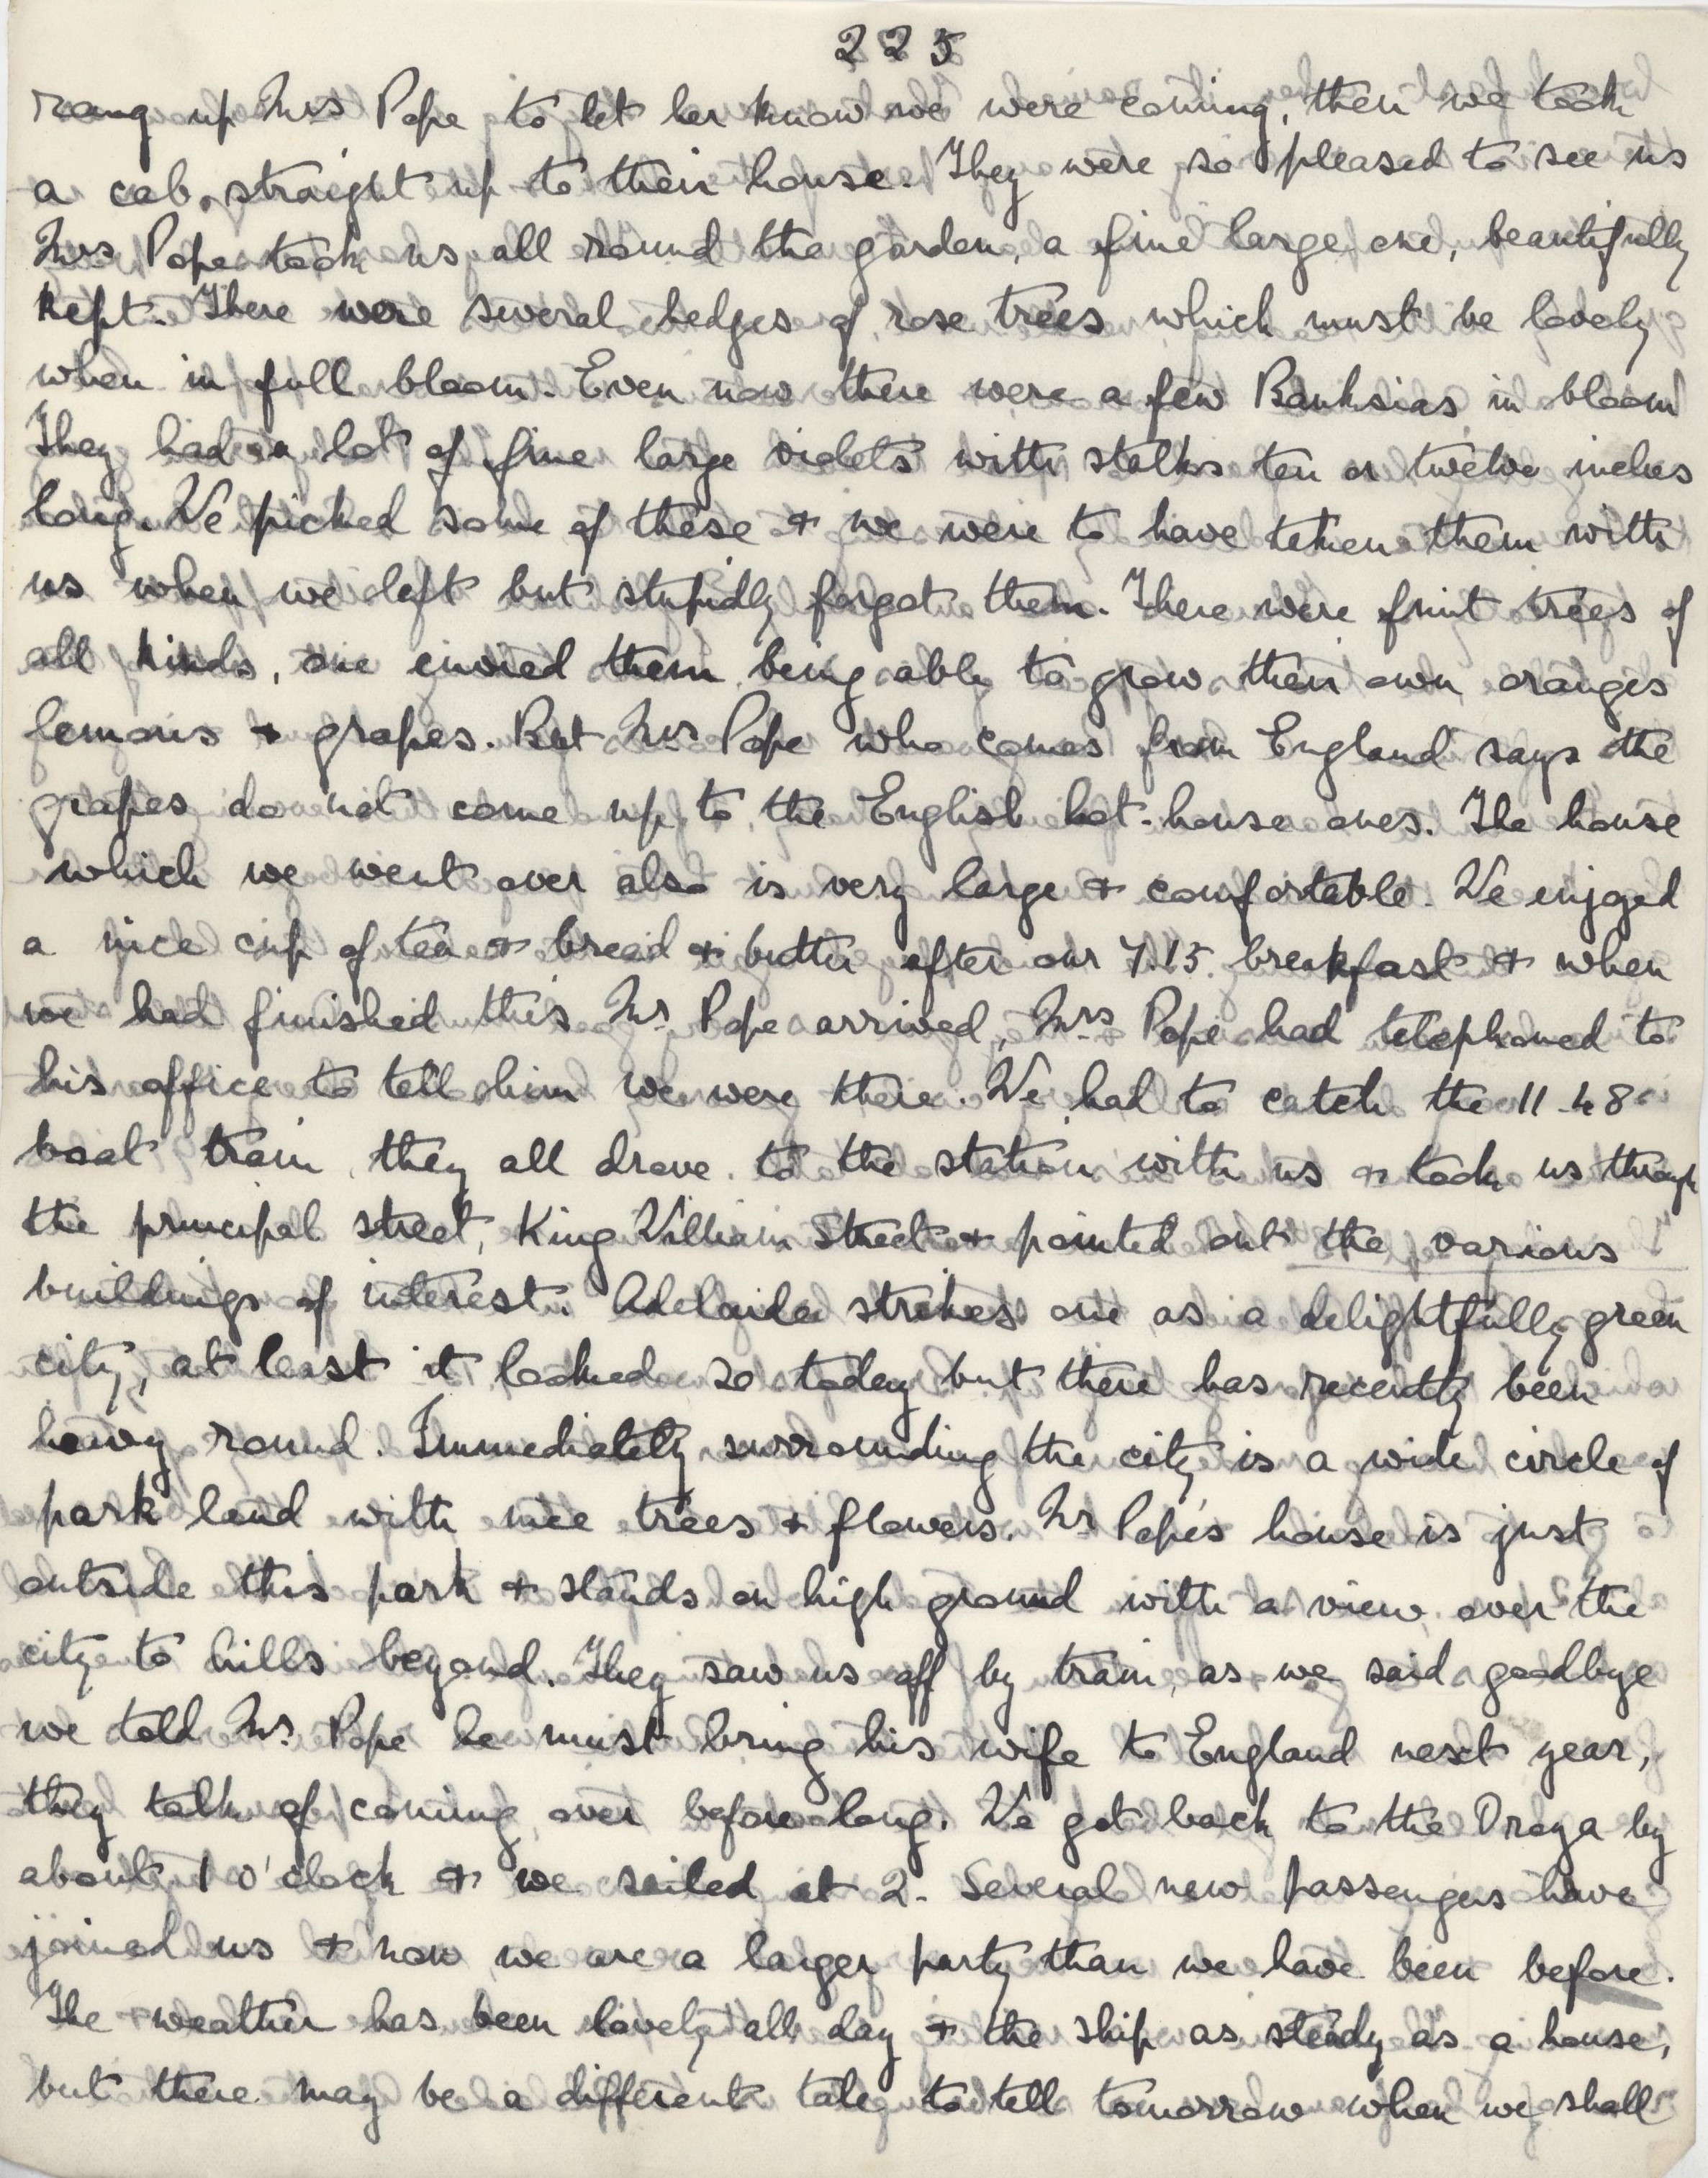 225
rang up Mrs Pope to let her know we were coming, then we took
a cab straight up to their house. They were so pleased to see us
Mrs Pope took us all round the garden, a fine large one, beautifully
kept. There were several hedges of rose trees which must be lovely
when in full bloom. Even now there were a few Banksias in bloom
They had a lot of fine large violets with stalks ten or twelve inches
long. We picked some of these + we were to have taken them with
us when we left but stupidly forgot them. There were fruit trees of
all kinds, one envied them being able to grow their own oranges
lemons + grapes. But Mrs Pope who comes from England says the
grapes do not come up to the English hot-house ones. The house
which we went over also is very large + comfortable. We enjoyed
a nice cup of tea + bread + butter after our 7.15 breakfast + when
we had finished this Mr Pope arrived, Mrs Pope had telephoned to
his office to tell him we were there. We had to catch the 11.48
boat train, they all drove to the station with us + took us through
the principal street, King William Street + pointed out the various
buildings of interest. Adelaide strikes one as a delightfully green
city, at least it looked so today but there has recently been
heavy round. Immediately surrounding the city is a wide circle of
park land with nice trees + flowers. Mr Pope's house is just
outside this park + stands on high ground with a view over the
city to hills beyond. They saw us off by train, as we said goodbye
we told Mr. Pope he must bring his wife to England next year,
they talk of coming over before long. We got back to the Oroya by
about 1 o'clock + we sailed at 2. Several new passengers have
joined us + now we are a larger party than we have been before.
The weather has been lovely all day + the ship as steady as a house,
but there may be a different tale to tell tomorrow when we shall